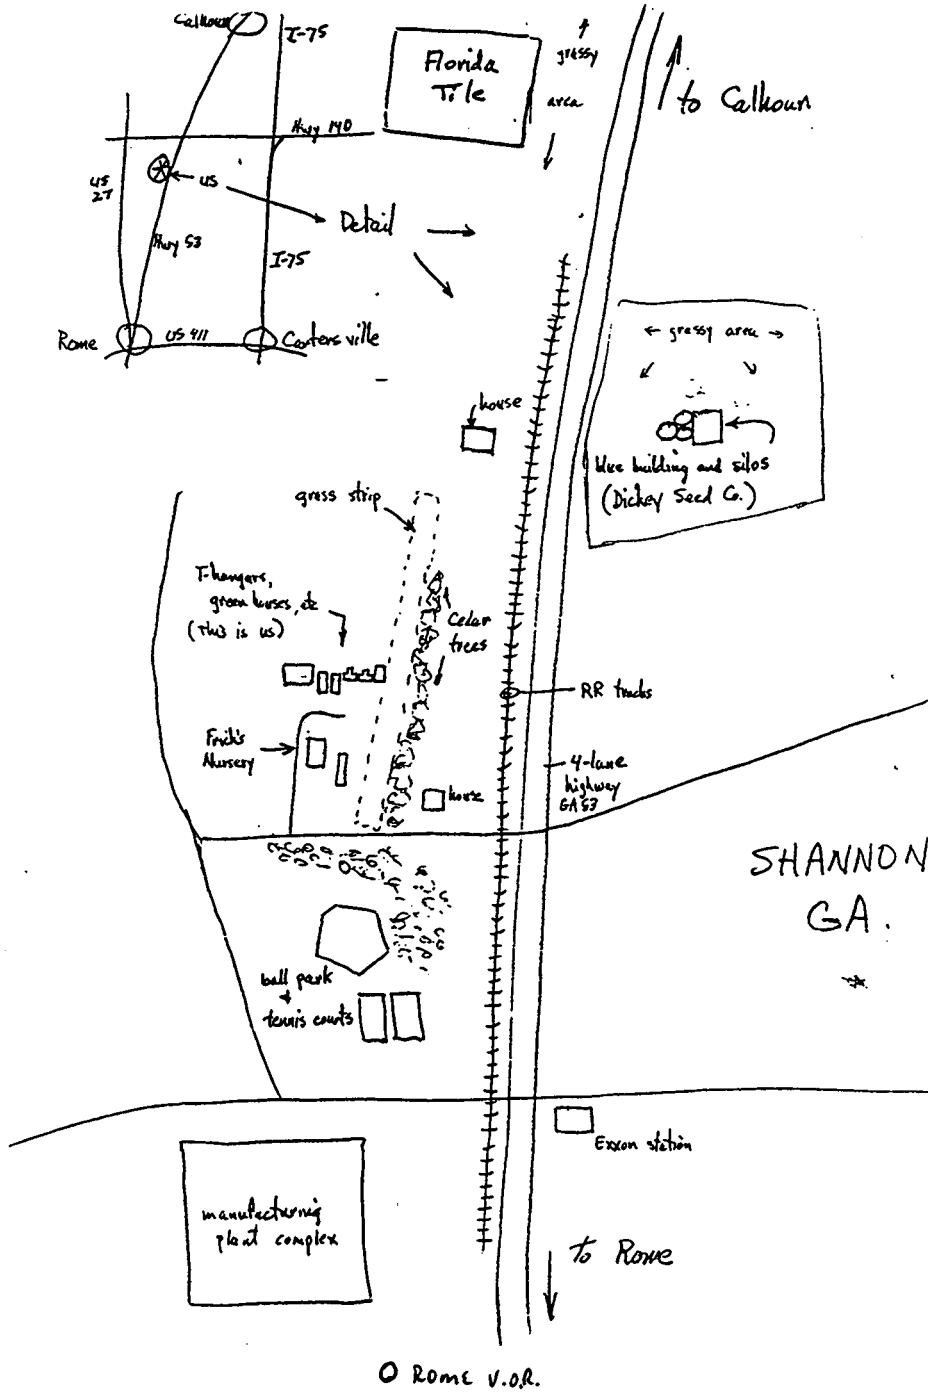 Calhoun
I-75
Florida
Tile
grassy
area
to Calhoun
Hwy 140
US
27
US
Detail
Hwy 53
I-75
Rome
US 411
Cartersville
← grassy area →
house
blue building and silos
(Dickey Seed Co.)
grass strip
T-hangars,
green houses, etc
(This is us)
Cedar
trees
RR tracks
Frick's
Nursery
4-lane
highway
GA 53
house
SHANNON
GA.
ball park
+
tennis courts
Exxon station
manufacturing
plant complex
to Rome
ROME V.O.R.